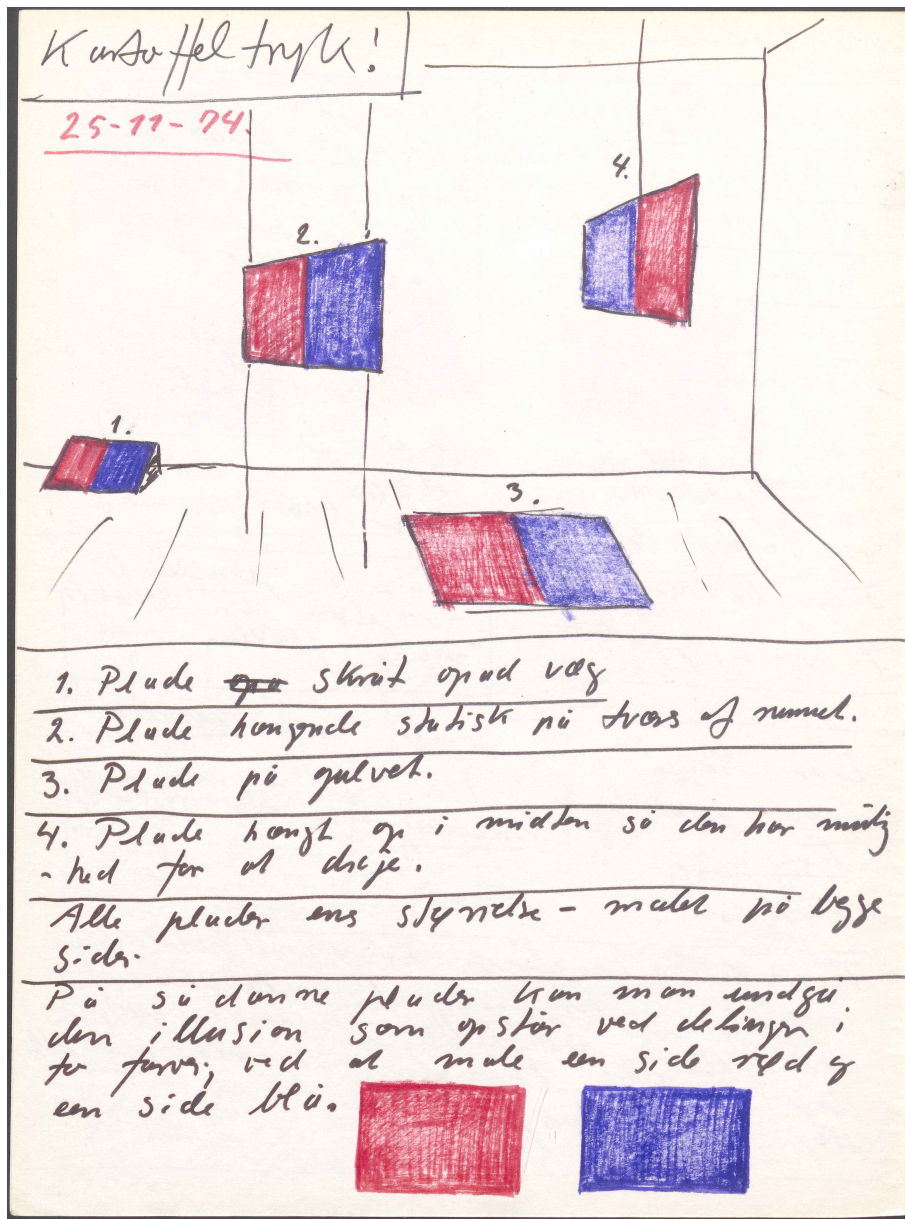 Kartoffeltryk!
25-11-74.
4.
2.
1.
3.
1. Plade opa skråt opad væg
2. Plade hængende statisk på tværs af rummet.
3. Plade på gulvet.
4. Plade hængt op i midten så den har mulig
- hed for at dreje.
Alle plader ens størrelse - malet på begge
sider.
På sådanne plader kan man undgå
den illusion som opstår ved delingen i
to farver, ved at male een side rød og
een side blå.